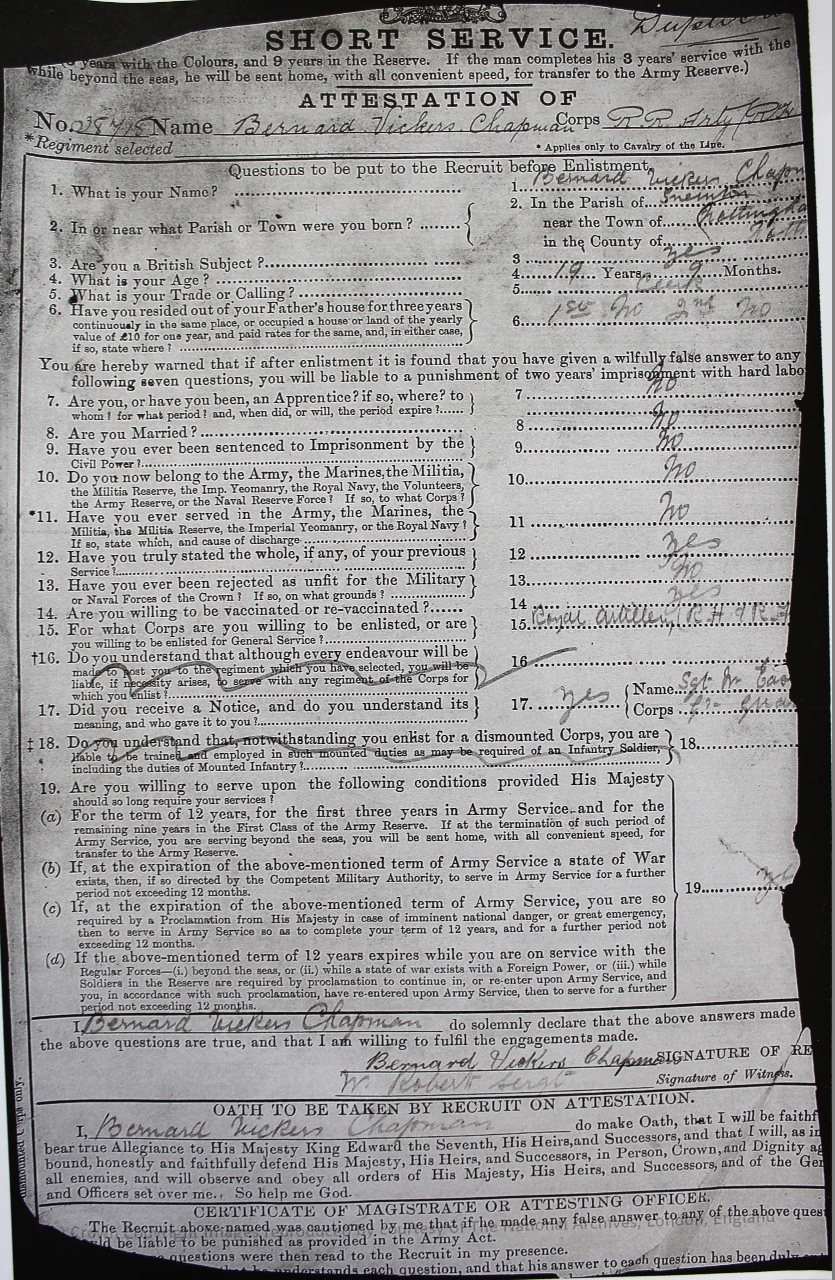 SHORT SERVICE.
years with the Colours, and 9 years in the Reserve. If the man completes his 3 years' service with the
while beyond the seas, he will be sent home, with all convenient speed, for transfer to the Army Reserve.)
ATTESTATION OF
No. Name Bernard Vickers Chapman Corps
*Regiment selected
* Applies only to Cavalry of the Line.
Questions to be put to the Recruit before Enlistment.
1. What is your Name? 1. Bernard Vickers Chapm
2. In or near what Parish or Town were you born? 2. In the Parish of Sneinton
near the Town of Nottingha
in the County of Nott
3. Are you a British Subject? 3 Yes
4. What is your Age? 4. 19 Years 9 Months.
5. What is your Trade or Calling? 5. Clerk
6. Have you resided out of your Father's house for three years
continuously in the same place, or occupied a house or land of the yearly
value of £10 for one year, and paid rates for the same, and, in either case,
if so, state where? 6. 1st No 2nd No
You are hereby warned that if after enlistment it is found that you have given a wilfully false answer to any
following seven questions, you will be liable to a punishment of two years' imprisonment with hard labo
7. Are you, or have you been, an Apprentice? if so, where? to
whom? for what period? and, when did, or will, the period expire? 7 No
8. Are you Married? 8 No
9. Have you ever been sentenced to Imprisonment by the
Civil Power? 9. No
10. Do you now belong to the Army, the Marines, the Militia,
the Militia Reserve, the Imp. Yeomanry, the Royal Navy, the Volunteers,
the Army Reserve, or the Naval Reserve Force? If so, to what Corps? 10. No
*11. Have you ever served in the Army, the Marines, the
Militia, the Militia Reserve, the Imperial Yeomanry, or the Royal Navy?
If so, state which, and cause of discharge 11 No
12. Have you truly stated the whole, if any, of your previous
Service? 12 Yes
13. Have you ever been rejected as unfit for the Military
or Naval Forces of the Crown? If so, on what grounds? 13. No
14. Are you willing to be vaccinated or re-vaccinated? 14 Yes
15. For what Corps are you willing to be enlisted, or are
you willing to be enlisted for General Service? 15. Royal Artillery
†16. Do you understand that although every endeavour will be
made to post you to the regiment which you have selected, you will be
liable, if necessity arises, to serve with any regiment of the Corps for
which you enlist? 16
17. Did you receive a Notice, and do you understand its
meaning, and who gave it to you? 17. Yes Name Sgt
Corps
‡18. Do you understand that, notwithstanding you enlist for a dismounted Corps, you are
liable to be trained and employed in such mounted duties as may be required of an Infantry Soldier,
including the duties of Mounted Infantry? 18.
19. Are you willing to serve upon the following conditions provided His Majesty
should so long require your services?
(a) For the term of 12 years, for the first three years in Army Service and for the
remaining nine years in the First Class of the Army Reserve. If at the termination of such period of
Army Service, you are serving beyond the seas, you will be sent home, with all convenient speed, for
transfer to the Army Reserve.
(b) If, at the expiration of the above-mentioned term of Army Service a state of War
exists, then, if so directed by the Competent Military Authority, to serve in Army Service for a further
period not exceeding 12 months.
19.
(c) If, at the expiration of the above-mentioned term of Army Service, you are so
required by a Proclamation from His Majesty in case of imminent national danger, or great emergency,
then to serve in Army Service so as to complete your term of 12 years, and for a further period not
exceeding 12 months.
(d) If the above-mentioned term of 12 years expires while you are on service with the
Regular Forces—(i.) beyond the seas, or (ii.) while a state of war exists with a Foreign Power, or (iii.) while
Soldiers in the Reserve are required by proclamation to continue in, or re-enter upon Army Service, and
you, in accordance with such proclamation, have re-entered upon Army Service, then to serve for a further
period not exceeding 12 months.
I, Bernard Vickers Chapman do solemnly declare that the above answers made
the above questions are true, and that I am willing to fulfil the engagements made.
Bernard Vickers Chapman SIGNATURE OF RE
W. Robert Sergt Signature of Witness.
OATH TO BE TAKEN BY RECRUIT ON ATTESTATION.
I, Bernard Vickers Chapman do make Oath, that I will be faithf
bear true Allegiance to His Majesty King Edward the Seventh, His Heirs, and Successors, and that I will, as in
bound, honestly and faithfully defend His Majesty, His Heirs, and Successors, in Person, Crown, and Dignity ag
all enemies, and will observe and obey all orders of His Majesty, His Heirs, and Successors, and of the Gen
and Officers set over me. So help me God.
CERTIFICATE OF MAGISTRATE OR ATTESTING OFFICER.
The Recruit above-named was cautioned by me that if he made any false answer to any of the above ques
ld be liable to be punished as provided in the Army Act.
questions were then read to the Recruit in my presence.
he understands each question, and that his answer to each question has been duly